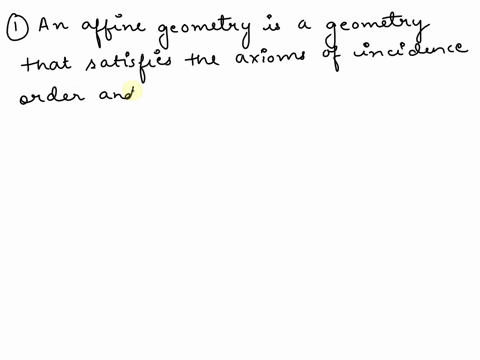 ① An affine geometry is a geometry
that satisfies the axioms of incidence
order and